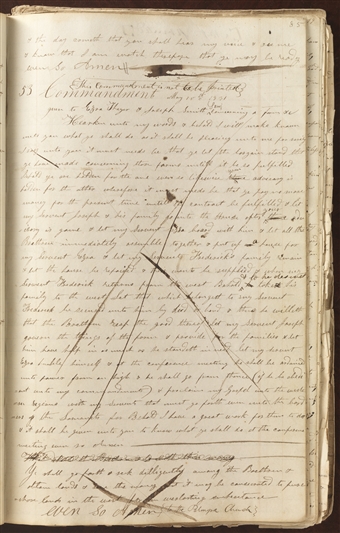 & the day cometh that you shall hear my voice & see me
& know that I am watch therefore that ye may be ready
even So Amen
53
53 Commandment
This Commandment is not to be printed
May 20th 1831
given to Ezra Thayer & Joseph Smith Jun. concerning a farm &c
Hearken unto my words & behold I will make known
unto you what ye shall do as it shall be pleasing unto me for verily
I say unto you it must needs be that ye let the bargain stand that
ye have made concerning these farms until it be so fulfilled
Behold ye are the one even so likewise thine adversary is
for the other wherefore it must needs be that ye pay no more
money for the present time until the contract be fulfilled & let
my servent Joseph & his family go into the House after thine
adversary is gone & let my Servent Ezra board with him & let all the
Brethren immediately assemble together & put up an house for
my servent Ezra & let my servent Frederick's family remain
& let the house be repaired & their wants be supplied & when my
servent Frederick returns from the west Behold he desireth to take his
family to the west let that which belongeth to my Servent
Frederick be secured unto him by deed or bond & thus he willeth
that the Brethren reap the good thereof let my servent Joseph
govern the things of the farm & provide for the families & let
him have help in as much as he standeth in need let my servent
Ezra humble himself & at the conference meeting he shall be ordained
unto power from on high & he shall go from thence (if he be obedi-
ent unto my commandments) & proclaim my Gospel unto the western
regions with my Servents that must go forth even unto the borders
of the Lamanites for Behold I have a great work for them to do
& it shall be given unto you to know what ye shall do at the conference
meeting even so amen
What shall the Brethren do with their money
Ye shall go forth & seek dilligently among the Brethren &
obtain lands & save the money that it may be consecrated to purch-
ase lands in the west for an everlasting inheritance
even So Amen